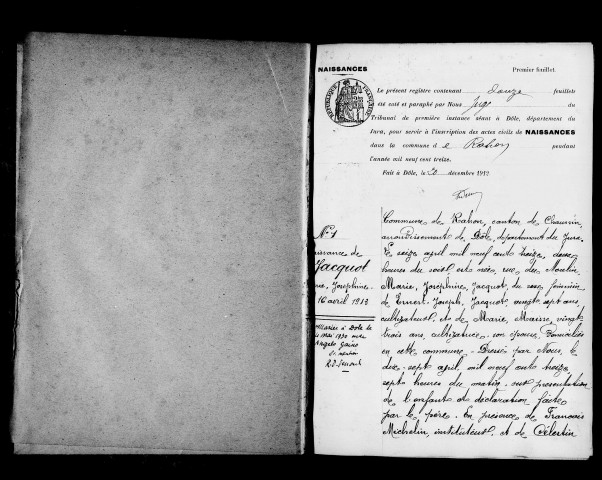 NAISSANCES
Premier feuillet.
RÉPUBLIQUE FRANÇAISE
Le présent registre contenant douze feuillets
été coté et paraphé par Nous Juge du
Tribunal de première instance séant à Dôle, département du
Jura, pour servir à l'inscription des actes civils de NAISSANCES
dans la commune d e Rahon pendant
l'année mil neuf cent treize.
Fait à Dôle, le 20 décembre 1912
N° 1
issance de
Jacquot
ie, Joséphine
16 avril 1913
Mariée à Dole le
mai 1930 avec
Angelo
Commune de Rahon, canton de Chaussin,
arrondissement de Dôle, département du Jura.
Le seize avril mil neuf cent treize, deux
heures du soir est née, rue du Moulin
Marie, Joséphine, Jacquot, du sexe féminin
de Ernest, Joseph, Jacquot, vingt sept ans,
cultivateur, et de Marie, vingt
trois ans, cultivatrice, son épouse, domiciliés
en cette commune. Dressé par Nous, le
dix-sept avril, mil neuf cent treize
sept heures du matin, sur présentation
de l'enfant et déclaration faite
par le père. En présence de François
Michelin, instituteur, et de Célestin